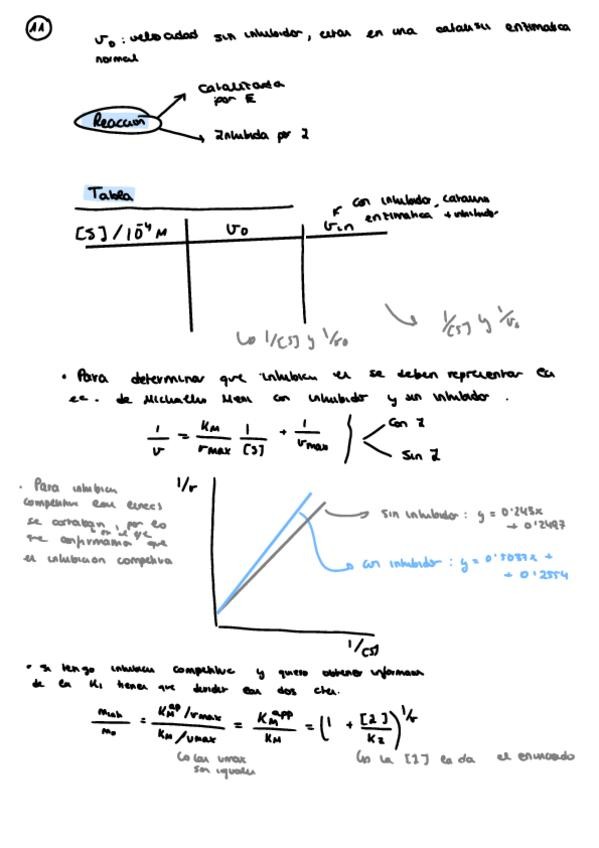 11
v₀: velocidad sin inhibidor, estas en una catalisis enzimatica
normal
Catalizada
por E
Reaccion
Inhibida por I
Tabla
con inhibidor, catalisis
enzimatica + inhibidor
[S]/10⁻⁴ M v₀ vin
↳ 1/[S] y 1/v₀
1/[S] y 1/v₀
• Para determinar que inhibicion es se deben representar la
ec. de Michaelis Men con inhibidor y sin inhibidor.
1/v = KM/vmax 1/[S] + 1/vmax
Con I
Sin I
• Para inhibicion
competitiva
se cortaban en el eje, por lo
que confirmamos que
es inhibicion competitiva
1/v
sin inhibidor: y = 0'243x
+ 0'2497
con inhibidor: y = 0'3037x +
+ 0'2554
1/[S]
• Si tengo inhibicion competitiva y quiero obtener informacion
de la KI tienes que dividir las dos ctes.
minh/m₀ = KMap/vmax / KM/vmax = KMapp/KM = (1 + [I]/KI)
↳ las vmax
son iguales
↳ la [I] la da el enunciado